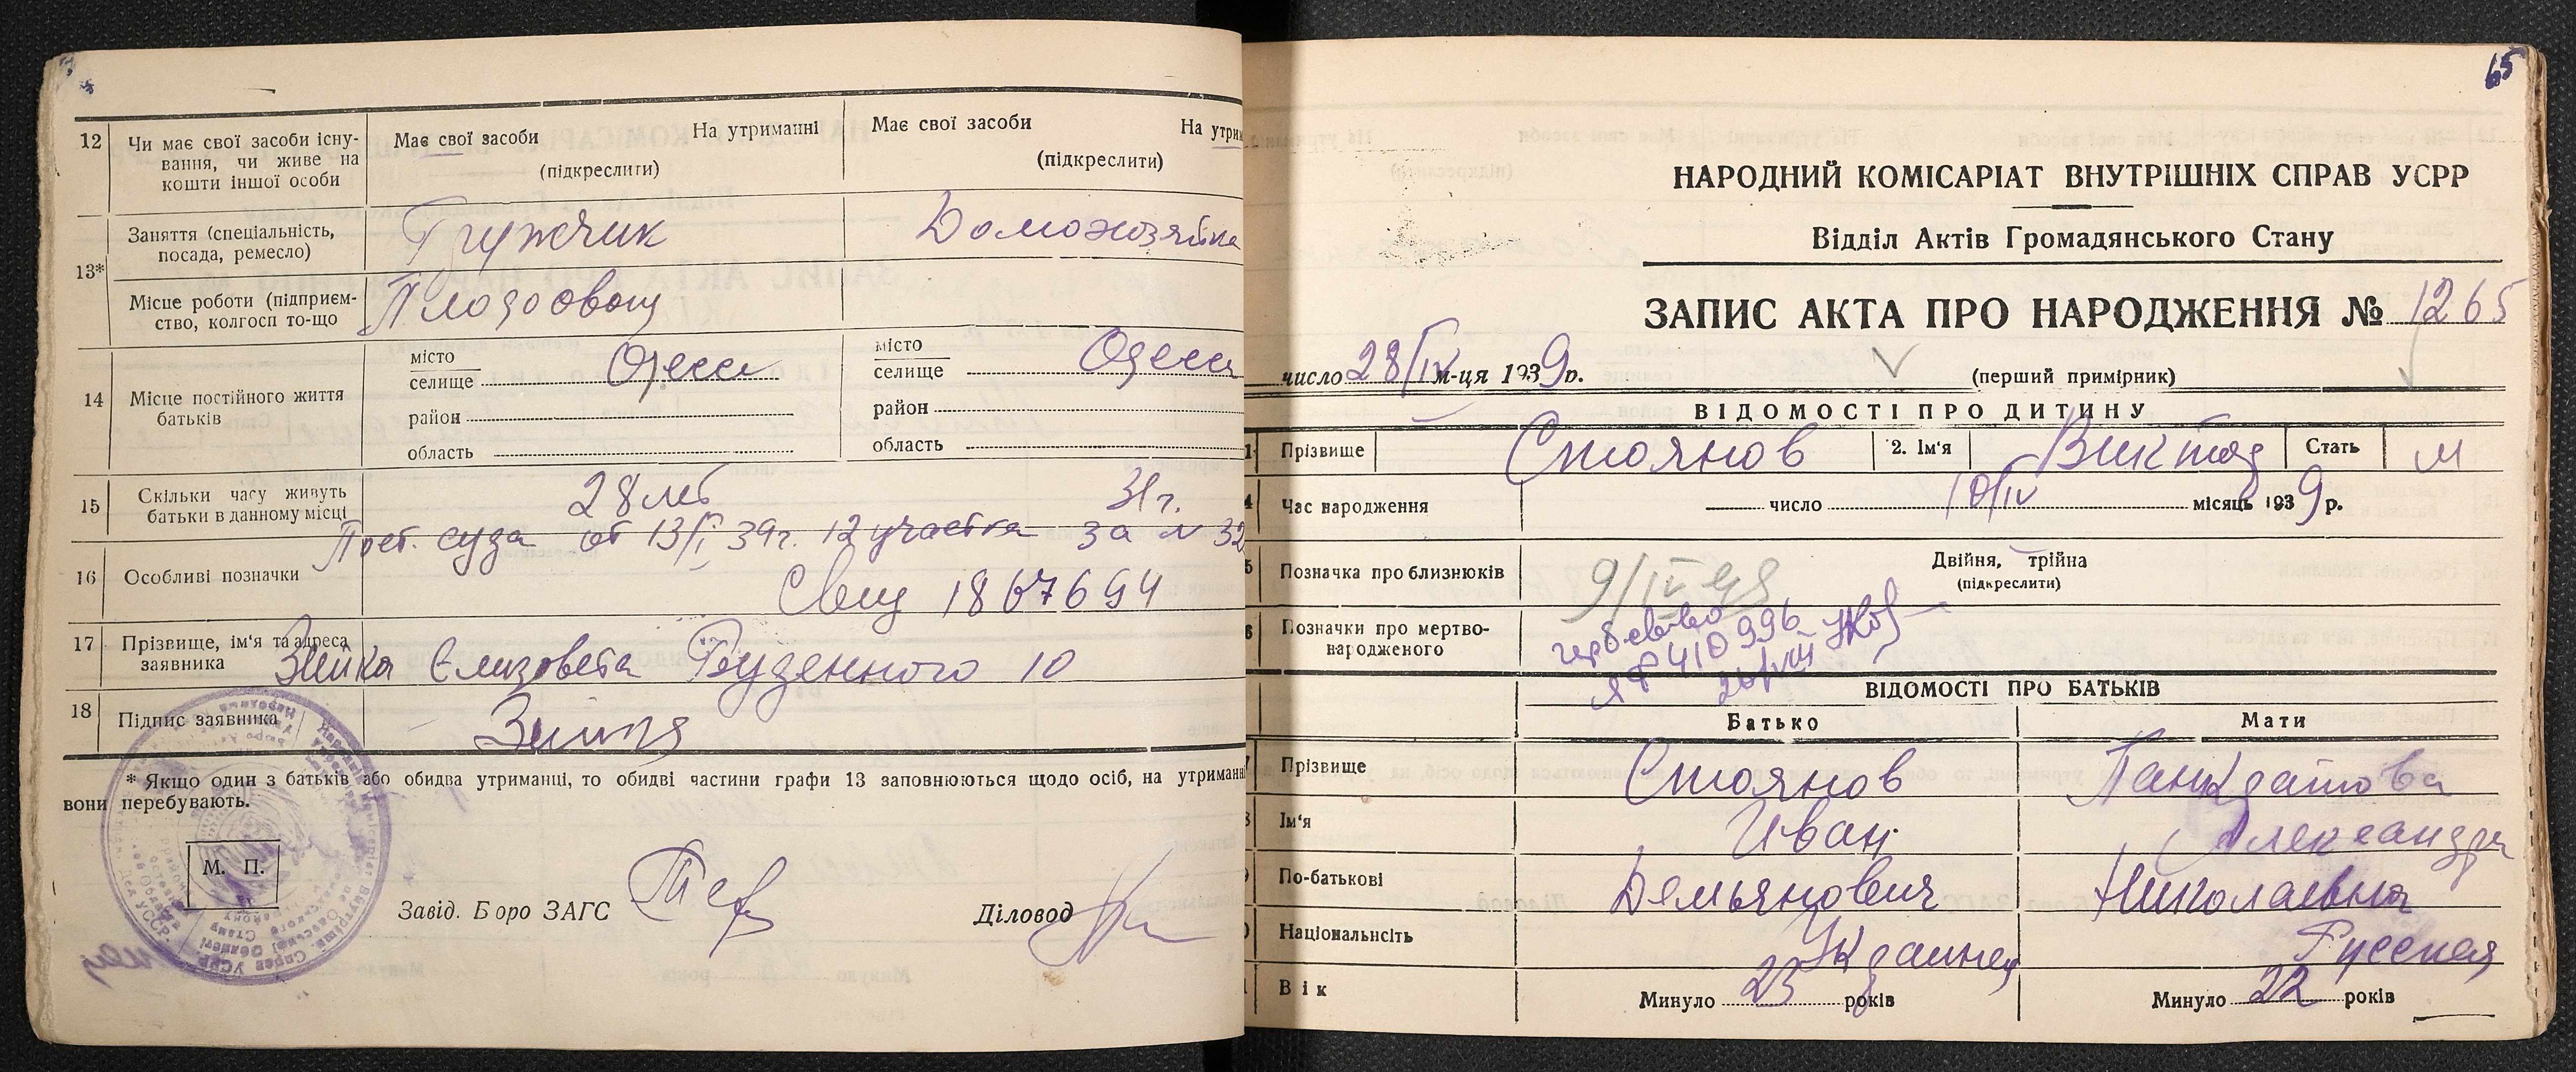 12
Чи має свої засоби існу-
вання, чи живе на
кошти іншої особи
Має свої засоби На утриманні
(підкреслити)
Має свої засоби На утрим
(підкреслити)
13*
Заняття (спеціальність,
посада, ремесло)
Грузчик
Домохозяйка
Місце роботи (підприєм-
ство, колгосп то-що
Плодоовощ
14
Місце постійного життя
батьків
місто
селище Одесса
район
область
місто
селище Одесса
район
область
15
Скільки часу живуть
батьки в данному місці
28 лет
31 г.
16
Особливі позначки
Пост. суда от 13/I 39 г. 12 участка за № 32
Свид 1867694
17
Прізвище, ім'я та адреса
заявника
Елизовета Буденного 10
18
Підпис заявника
* Якщо один з батьків або обидва утриманці, то обидві частини графи 13 заповнюються щодо осіб, на утриманні
вони перебувають.
М. П.
Завід. Бюро ЗАГС
Діловод
65
НАРОДНИЙ КОМІСАРІАТ ВНУТРІШНІХ СПРАВ УСРР
Відділ Актів Громадянського Стану
ЗАПИС АКТА ПРО НАРОДЖЕННЯ № 1265
число 28/IV м-ця 1939 р.
(перший примірник)
ВІДОМОСТІ ПРО ДИТИНУ
1 Прізвище Стоянов 2. Ім'я Виктор Стать М
4 Час народження число 10/IV місяць 1939 р.
5 Позначка про близнюків
9/IV
Двійня, трійня
(підкреслити)
6 Позначки про мертво-
народженого
ЯФ 410996
ВІДОМОСТІ ПРО БАТЬКІВ
Батько Мати
Прізвище Стоянов Панкратова
Ім'я Иван Александра
По-батькові Демьянович Николаевна
Національнсіть Украинец Русская
Вік Минуло 23 років Минуло 22 років